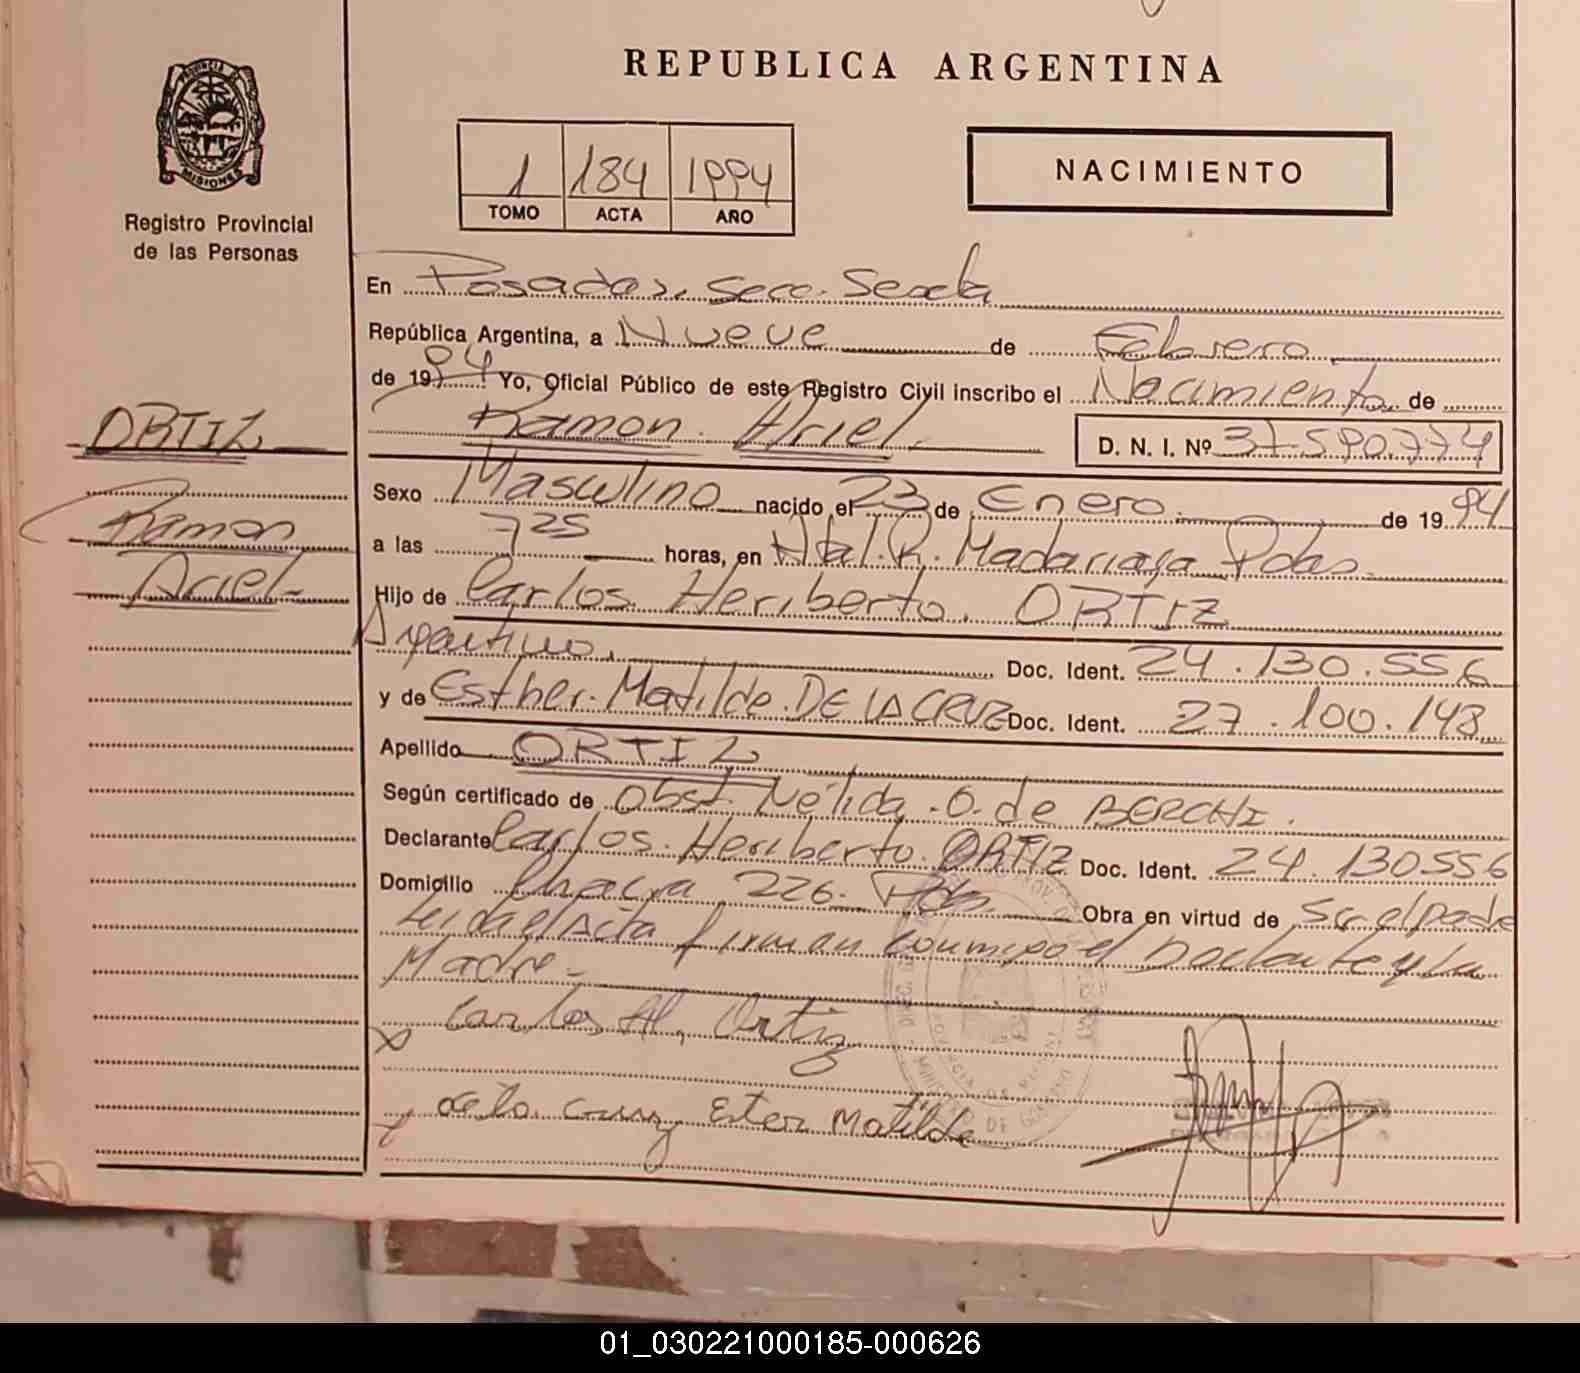 REPUBLICA ARGENTINA
PROVINCIA DE
MISIONES
Registro Provincial
de las Personas
1 184 1994
TOMO ACTA AÑO
NACIMIENTO
En Posadas, Secc. Sexta
República Argentina, a Nueve de Febrero
de 1994 Yo, Oficial Público de este Registro Civil inscribo el Nacimiento de
Ramon Ariel D. N. I. Nº 37.590.774
ORTIZ
Ramon
Ariel
Sexo Masculino nacido el 23 de Enero de 1994
a las 7 25 horas, en Htal. R. Madariaga Pdas.
Hijo de Carlos Heriberto ORTIZ
Argentino, Doc. Ident. 24.130.556
y de Esther Matilde DE LA CRUZ Doc. Ident. 27.100.148
Apellido ORTIZ
Según certificado de Obst. Nélida O. de BERCHI.
Declarante Carlos Heriberto ORTIZ Doc. Ident. 24.130556
Domicilio 226 Pdas. Obra en virtud de Ser el padre
Leida el Acta firman conmigo el Declarante y la
Madre
x Carlos H, Ortiz
x de la Cruz Ester Matilde
01_030221000185-000626